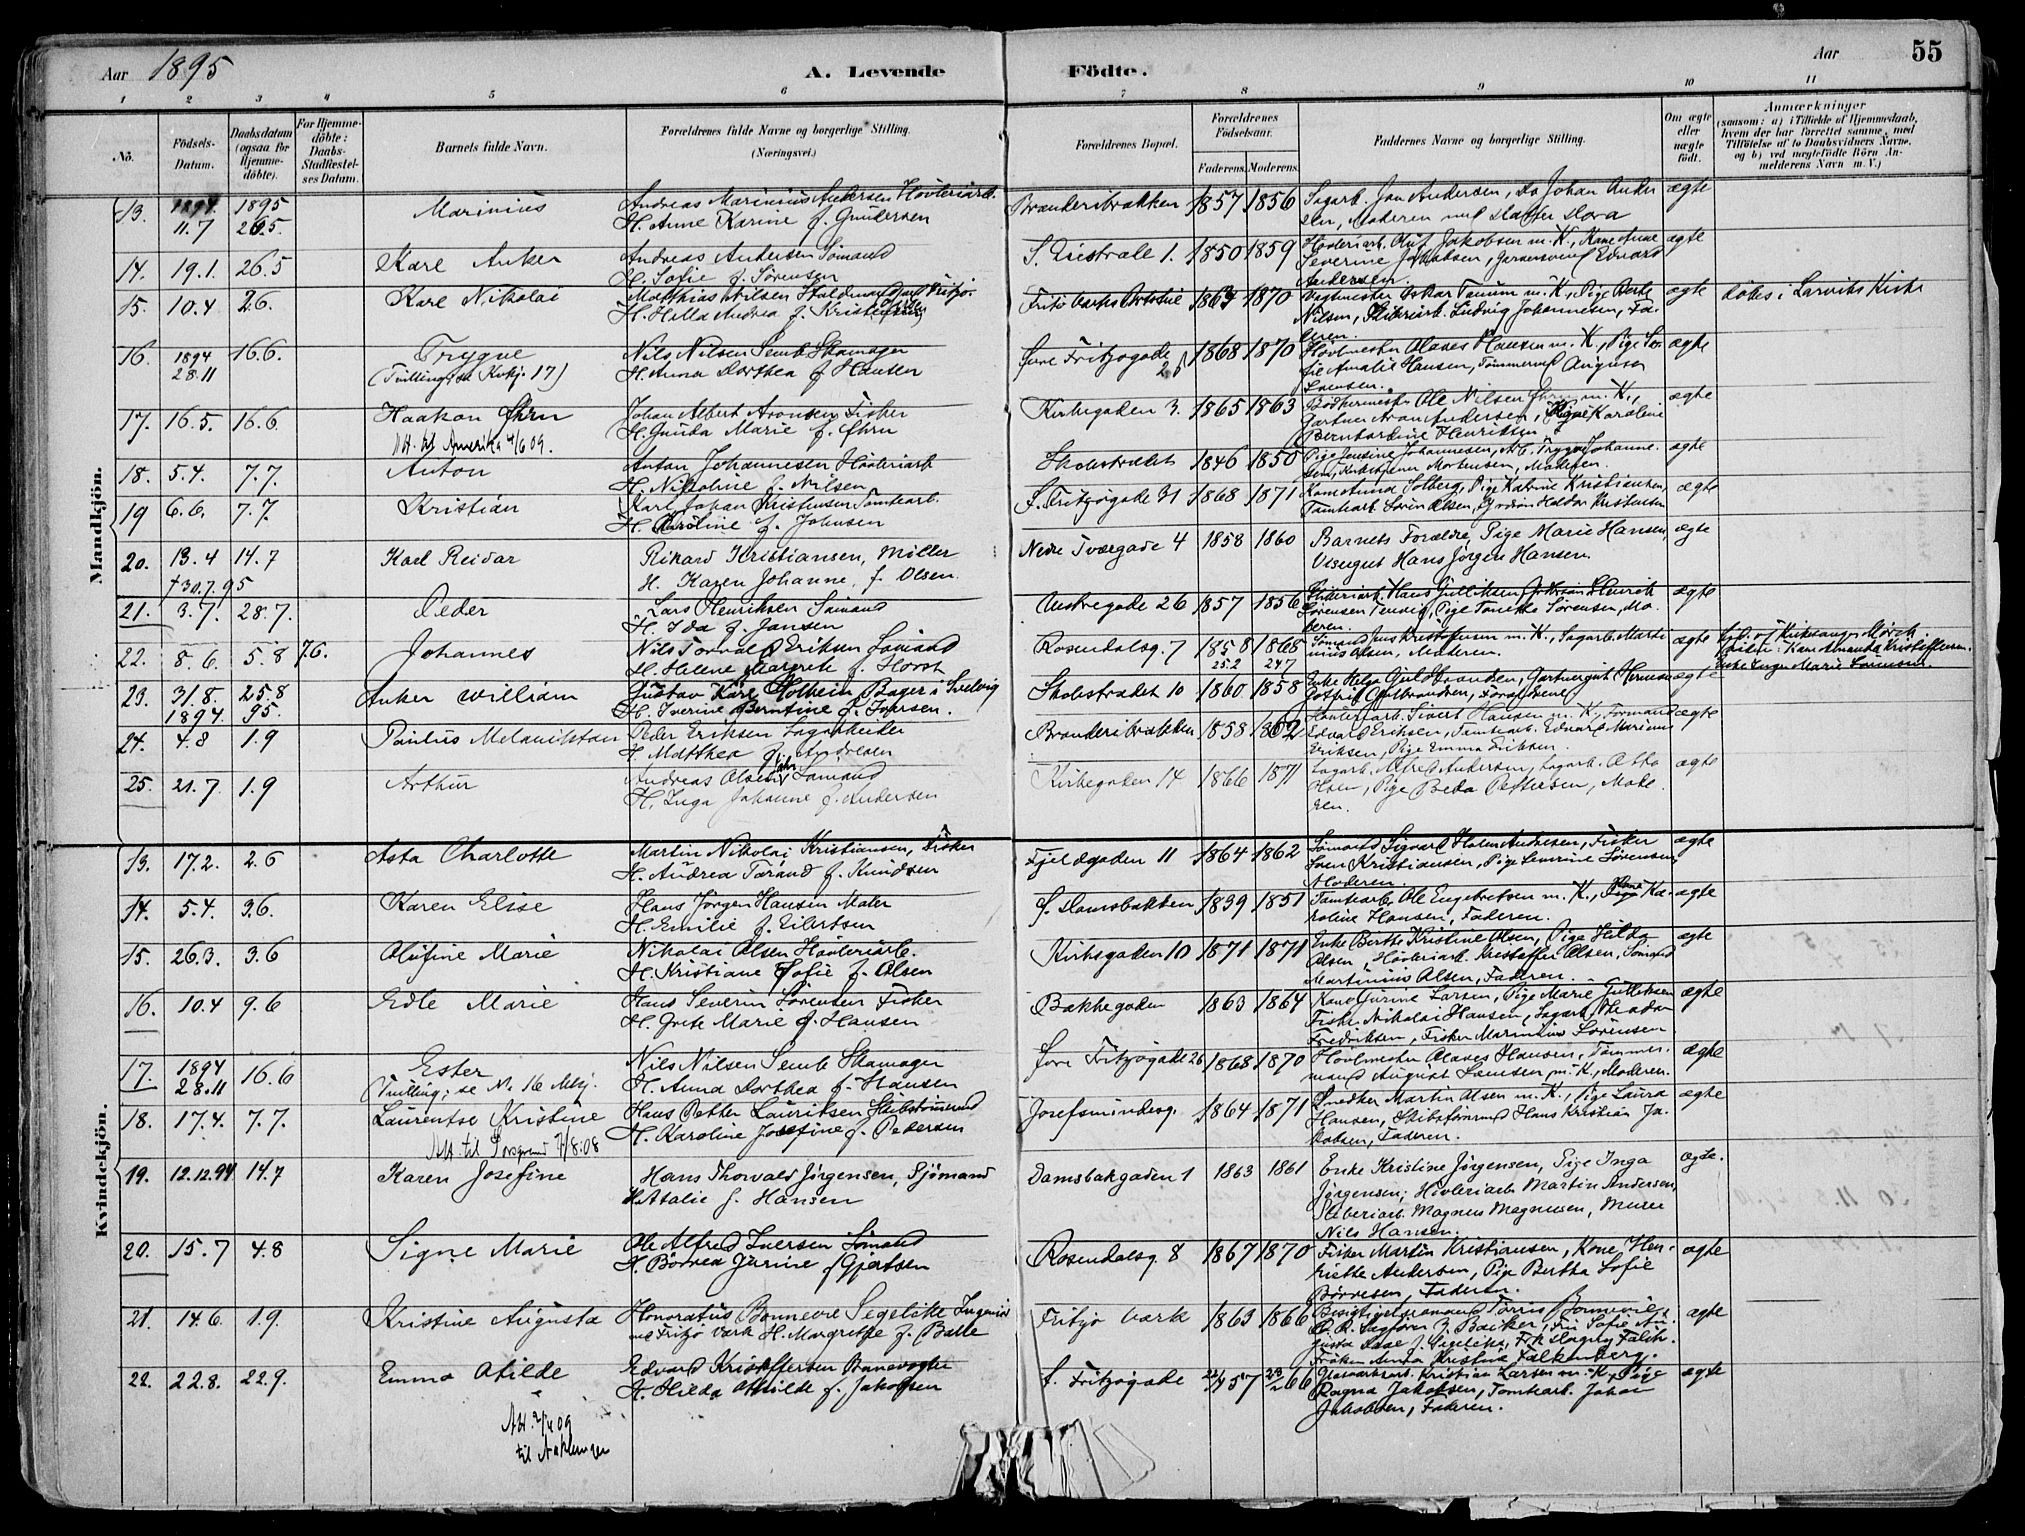 Aar 1895
A. Levende
Födte.
Aar
55
1 2 3 4 5 6 7 8 9 10 11
No.
Födsels-Datum.
Daabsdatum (ogsaa for Hjemme-döbte).
For Hjemme-döbte: Daabs-Stadfæstel-ses Datum.
Barnets fulde Navn.
Forældrenes fulde Navne og borgerlige Stilling.
(Næringsvei.)
Forældrenes Bopæl.
Forældrenes Födselsaar.
Faderens. Moderens.
Faddernes Navne og borgerlige Stilling.
Om ægte eller uægte födt.
Anmærkninger
(saasom: a) i Tilfælde af Hjemmedaab, hvem der har forrettet samme, med Tilföielse af to Daabsvidners Navne, og b) ved uægtefödte Börn An-melderens Navn m. V.)
Mandkjön.
13. 1894 11.7 1895 26.5. Marinius
Andreas Marinius Andersen Høvleriarb.
H. Anne Karine f. Gundersen
Brandersbakken 1857 1856
Sagarb. Jan Andersen, Do Johan Ander
sen, Moderen med Datter Dora
ægte
14. 19.1. 26.5 Karl Anker
Andreas Andersen Sømand
H. Sofie f. Sørensen
1850 1859
Høvleriarb. Oluf Jakobsen m. K., Kone Anne
Severine Jakobsen, Edvard
Andersen
ægte
15. 10.4 2.6. Karl Nikolai
Matthias Nilsen
H. Hilda Andrea f. Kristensen
1870
Oskar Tanum m. K., Pige Berte
Nilsen, Ludvig Johannesen, Fa-
deren.
ægte døbt i Larviks Kirke
16. 1894 28.11 16.6. Trygve
(Tvilling; se Kvkj. 17)
Nils Nilsen Semb Skomager
H. Anna Dorthea f. Hansen
Øvre Fritzøgade 26 1868 1870
Høvlmester Olaves Hansen m. K., Pige So-
fie Amalie Hansen, Tømmermd August
Lamsen.
ægte
17. 16.5. 16.6. Haakon Øhrn
Att. til Amerika 4/6 09.
Johan Albert Aronsen Fisker
H. Gusta Marie f. Øhrn
Kirkegaden 3. 1865 1863
Ole Nilsen m. K.,
Gartner Aron Andersen, Pige Karoline
Bernhardine Henriksen
ægte
18. 5.4. 7.7. Anton
Anton Johannesen Høvleriarb
H. Nikoline f. Nilsen
Skolestrædet 1846 1850
Pige Jensine Johannesen, Trygve Johanne-
sen, Mortensen, Moderen.
ægte
19 6.6. 7.7. Kristian
Karl Johan Kristensen Tomtearb.
H. Karoline f. Johnsen
S. Fritzøgade 31 1868 1871
Kone Anna Solberg, Pige Katrine Kristiansen,
Tomtearb. Søren Olsen, Haldor Kristensen
ægte
20. 13.4 14.7 Karl Reidar
† 30.7.95
Rikard Kristiansen, Møller
H. Karen Johanne, f. Olsen.
Nedre Tværgade 4 1858 1860
Barnets Forældre, Pige Marie Hansen,
Visergut Hans Jørgen Hansen.
ægte
21. 3.7. 28.7. Peder
Lars Henriksen Sømand
H. Ida f. Jansen
Vestregade 26 1857 1856
Hans Gulliksen, Henrik
Sørensen Tenvig, Pige Tomine Sørensen, Mo-
deren.
ægte
22. 8.6. 5.8 7.6. Johannes
Nils Torvald Eriksen Sømand
H. Helene Margrete f. Horst
Rosendalsg. 7 1858 25.2 1868 24.7
Sømand Jens Kristoffersen m. K., Sagarb. Marti
nius Olsen, Moderen.
ægte
Hd. af Kirkesanger Mørch
Vidner: Kone Amanda Kristoffersen
Enke Inger Marie Sørensen.
23. 31.8. 1894. 25.8 95. Anker William
Gustav Karl Holheim Bager i Svelvig
H. Iverine Berntine f. Iversen.
Skolestrædet 10 1860 1858
Enke Helga Guldbrandsen, Gartnergut Herman
Gotfrid Guldbrandsen, Forældrene
ægte
24. 4.8 1.9 Paulus Melanikton
Peder Eriksen Sagarbeider
H. Matthea f. Andresen
Brandersbakken 1858 1862
Høvleriarb. Sivert Hansen m. K., Formand
Edvard Eriksen, Tomtearb. Edvard Marinius
Eriksen, Pige Emma Eriksen.
ægte
25. 21.7. 1.9 Arthur
Andreas Olsen Sømand
H. Inga Johanne f. Andersen
Kirkegaden 14 1866 1871
Sagarb. Alfred Andersen, Sagarb. Otto
Olsen, Pige Beda Pettersen, Mode-
ren.
ægte
Kvindekjön.
13. 17.2. 2.6 Asta Charlotte
Martin Nikolai Kristiansen, Fisker
H. Andrea Tørand f. Knudsen
Fjeldgaden 11 1864 1862
Sømand Sigvard Holm Andresen, Fisker
Sven Kristiansen, Pige Severine Sørensen,
Moderen.
ægte
14. 5.4. 3.6. Karen Elise
Hans Jørgen Hansen Maler
H. Emilie f. Eilertsen
S. Damsbakken 1839 1851
Tomtearb. Ole Engebretsen m. K., Kone Ka-
roline Hansen, Faderen.
ægte
15. 26.3. 3.6 Olufine Marie
Nikolai Olsen Høvleriarb.
H. Kristiane Sofie f. Olsen
Kirkegaden 10 1871 1871
Enke Birthe Kristine Olsen, Pige Hilda
Olsen, Høvleriarb. Kristoffer Olsen, Sømand
Martinius Olsen, Faderen.
ægte
16. 10.4 9.6 Edle Marie
Hans Severin Sørensen Fisker
H. Grete Marie f. Hansen
Bakkegaden 1863 1864
Kone Gurine Larsen, Pige Marie Gulliksen
Fisk. Nikolai Hansen, Sagarb. Theodor
Fredriksen, Fisker Marinius Sørensen.
ægte
17. 1894 28.11 16.6 Ester
(Tvilling; se N. 16 Mkj.
Nils Nilsen Semb Skomager
H. Anna Dorthea f. Hansen
Øvre Fritzøgade 26 1868 1870
Høvlmester Olaves Hansen, Tømmer-
mand August Lamsen m. K., Moderen.
ægte
18. 17.4. 7.7. Laurentse Kristine
Att. til Porsgrund 7/8.08
Hans Petter Lauritsen Skibstømmermd
H. Karoline Josefine f. Petersen
Josefsmindesg. 1864 1871
Snedker Martin Olsen m. K., Pige Laura
Hansen, Skibstømrmd Hans Kristian Ja-
kobsen, Faderen.
ægte
19. 12.12.94 14.7 Karen Josefine
Hans Thorvald Jørgensen, Sjømand
Nattalie f. Hansen
Damsbakgaden 1 1863 1861
Enke Kristine Jørgensen, Pige Inga
Jørgensen, Høvleriarb Martin Andersen,
Sliberiarb. Magnus Magnusen, Murer
Nils Hansen.
ægte.
20. 15.7 4.8 Signe Marie
Ole Alfred Iversen Sømand
H. Børrea Jørine f. Gjertsen
Rosendalsg. 8 1867 1870
Fisker Martin Kristiansen, Kone Hen-
riette Andersen, Pige Bertha Sofie
Børresen, Faderen.
ægte
21. 14.6. 1.9. Kristine Augusta
Honoratus Bonnevie Segelcke Ingeniør
ved Fritzø Værk H. Margrethe f. Balle
Fritzø Værk 1863 1866
Besigtigelsesmand Tørris Bonnevie,
O. R. Sagfører J. Bacher, Fru Sofie Au-
gusta Aase f. Segelcke, Frk Dagny Falch
Frøken Anna Kristine Falkenberg.
ægte
22. 22.8. 22.9. Emma Otilde
Att. 2/4 09
Edvard Kristoffersen Banevogter
H. Hilda Otilde f. Jakobsen
S. Fritzøgade 22/4 57 23/2 66
Glasværksarb. Kristian Larsen m. K., Pige
Ragna Jakobsen, Tomtearb. Johan
Jakobsen, Faderen.
ægte